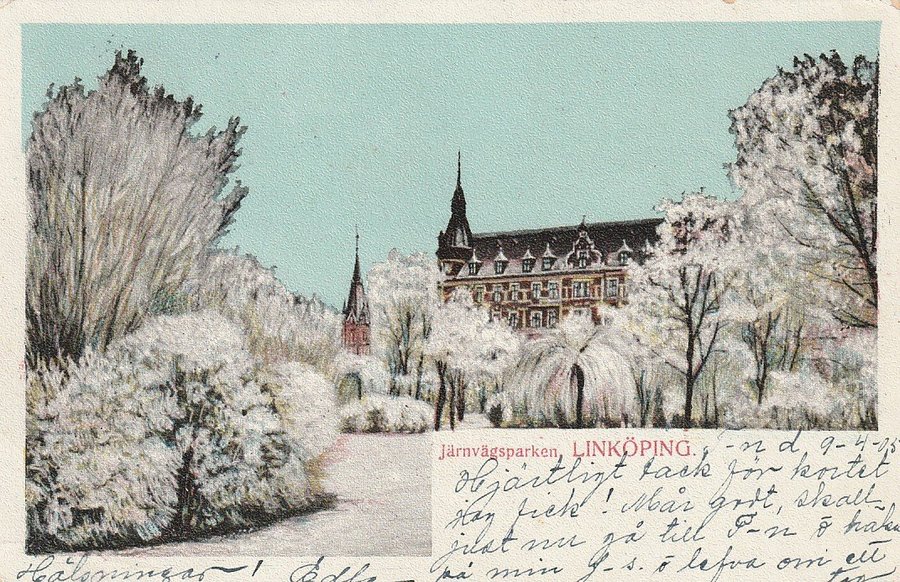 Järnvägsparken, LINKÖPING.
n d 9-4-05
Hjärtligt tack för kortet
jag fick! Mår godt, skall
just nu gå till F-n ö hälsa
på min G-s. ö lefva om ett
Hälsningar!